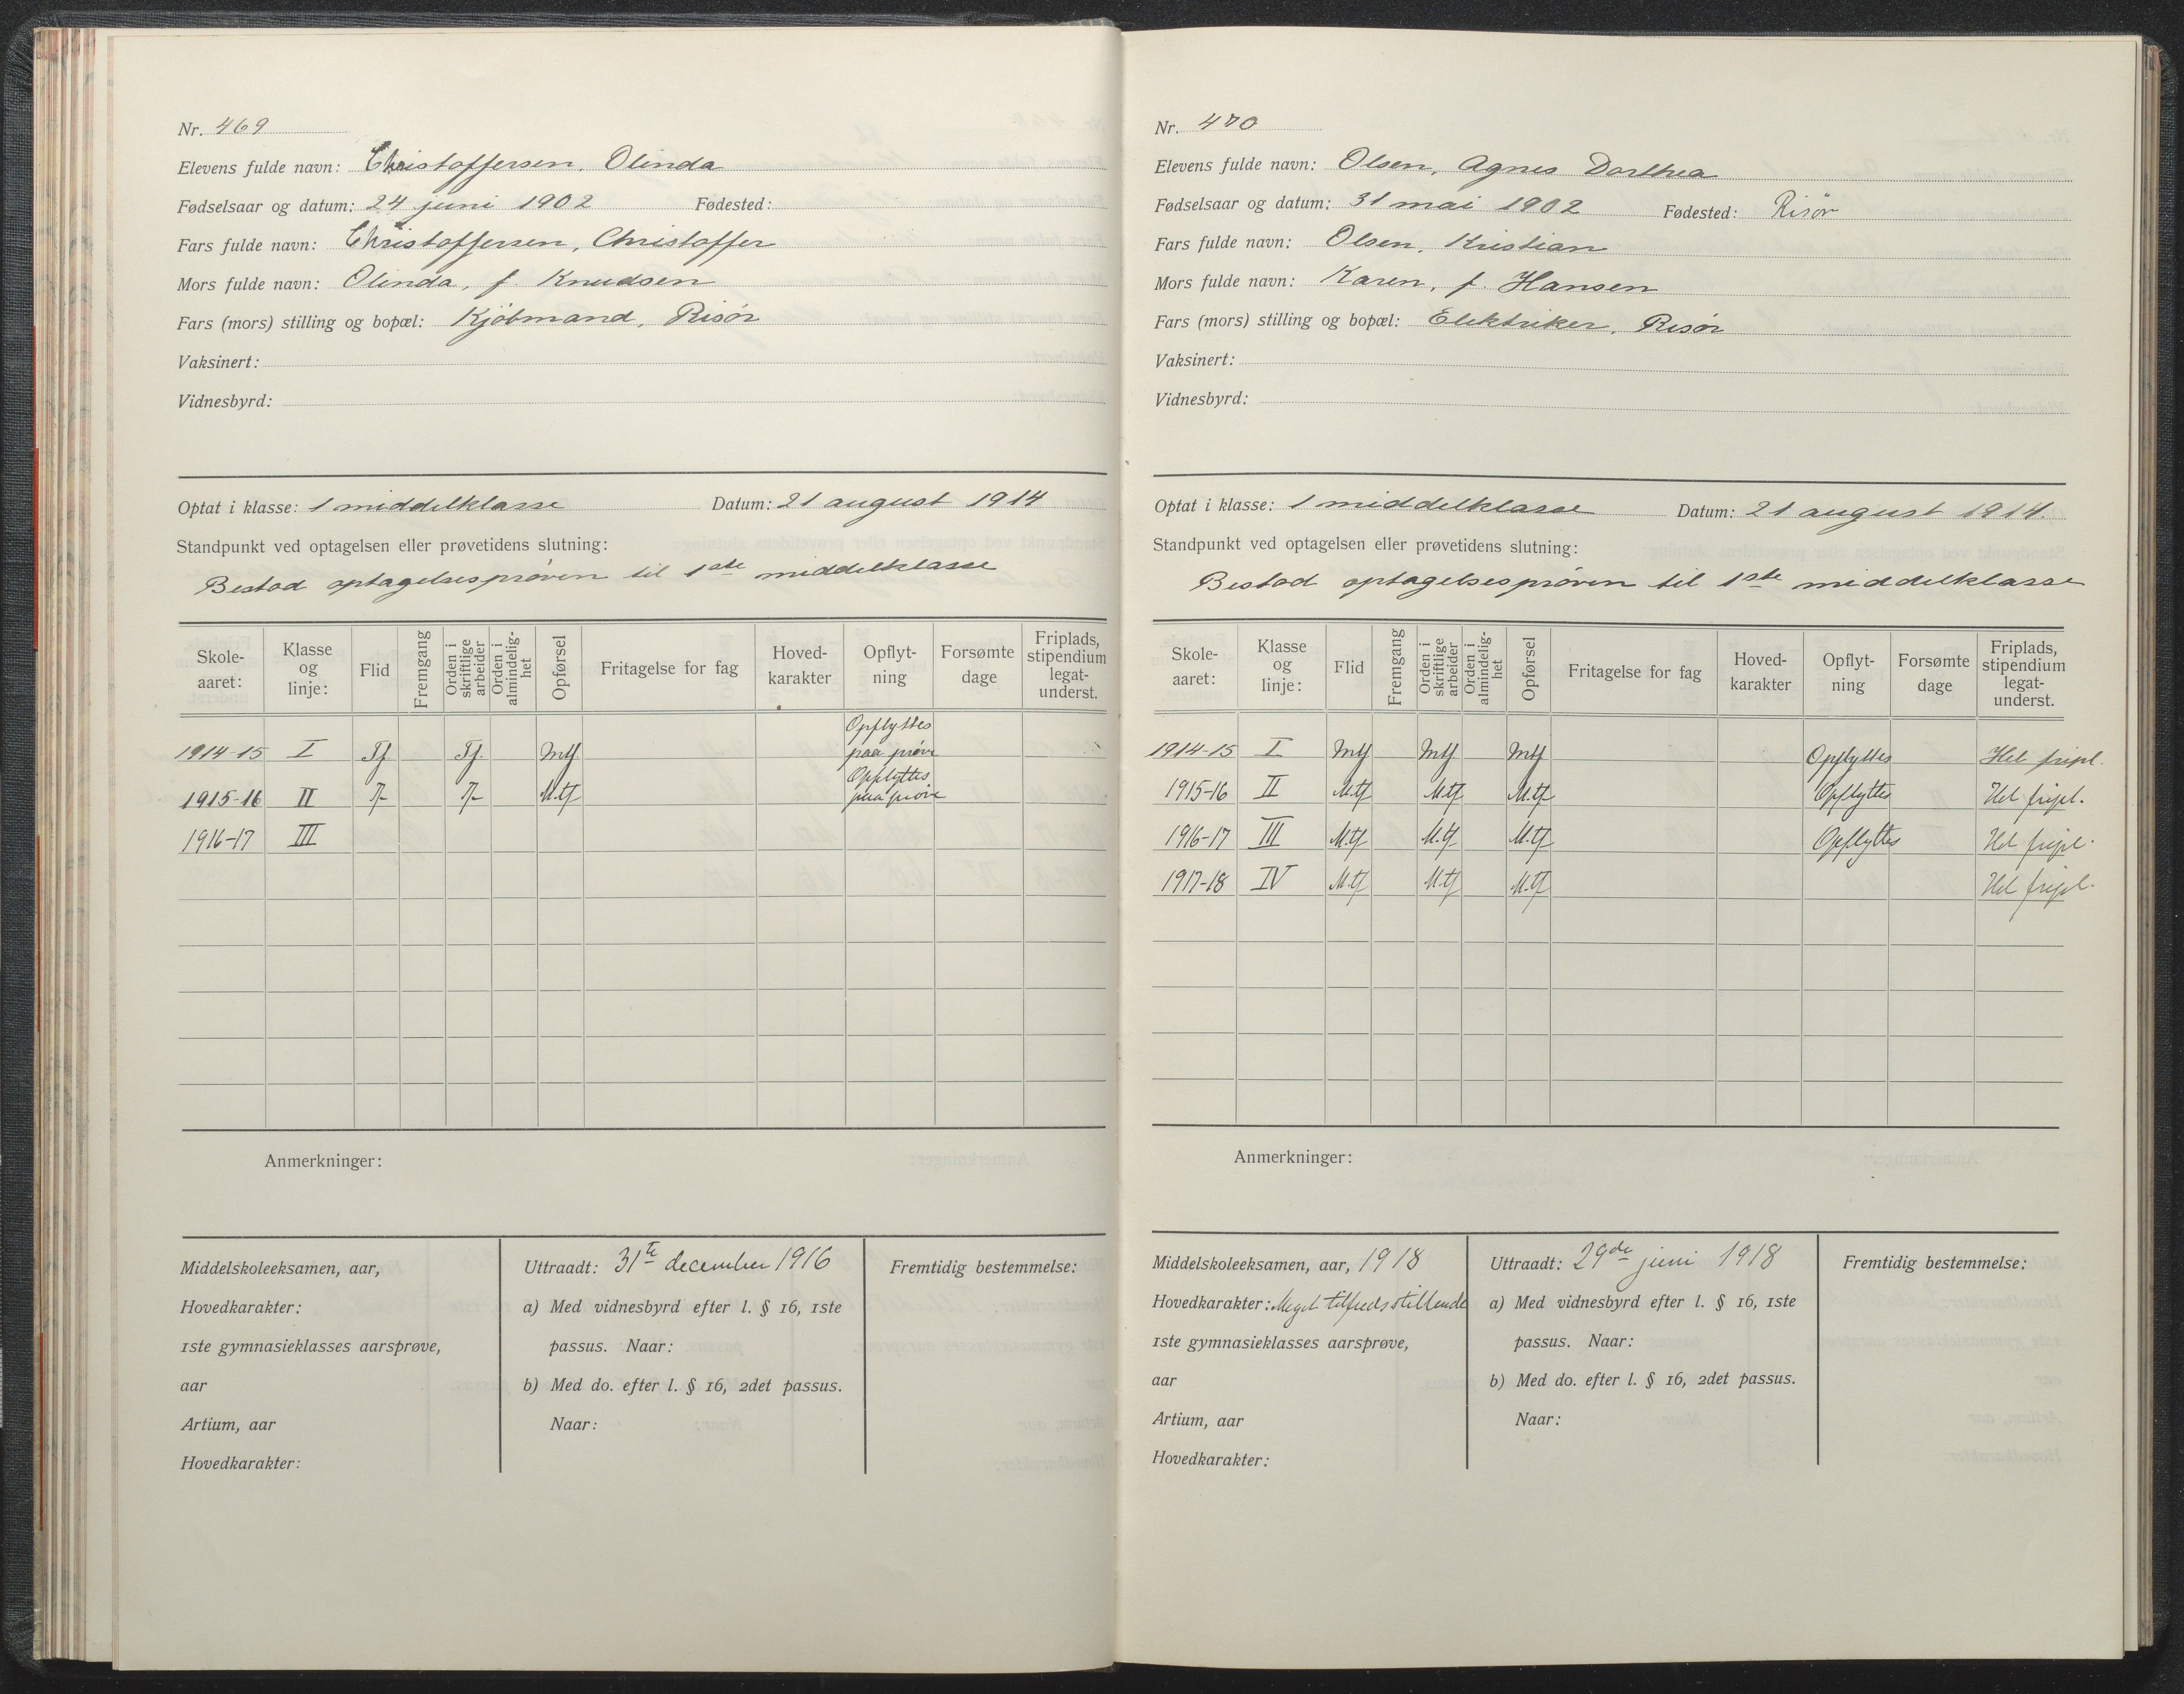 Nr. 469
Elevens fulde navn: Christoffersen, Olinda
Fødselsaar og datum: 24 juni 1902 Fødested:
Fars fulde navn: Christoffersen, Christoffer
Mors fulde navn: Olinda, f. Knudsen
Fars (mors) stilling og bopæl: Kjöbmand, Risör
Vaksinert:
Vidnesbyrd:
Optat i klasse: 1 middelklasse Datum: 21 august 1914
Standpunkt ved optagelsen eller prøvetidens slutning:
Bestod optagelsesprøven til 1ste middelklasse
Skole-aaret: Klasse og linje: Flid Fremgang Orden i skriftlige arbeider Orden i almindelig-het Opførsel Fritagelse for fag Hoved-karakter Opflyt-ning Forsømte dage Friplads, stipendium legat-underst.
1914-15 I Tf Tf. Mtf Opflyttes paa prøve
1915-16 II M.tf Opflyttes paa prøve
1916-17 III
Anmerkninger:
Middelskoleeksamen, aar,
Hovedkarakter:
1ste gymnasieklasses aarsprøve,
aar
Artium, aar
Hovedkarakter:
Uttraadt: 31te december 1916
a) Med vidnesbyrd efter l. § 16, 1ste
passus. Naar:
b) Med do. efter l. § 16, 2det passus.
Naar:
Fremtidig bestemmelse:
Nr. 470
Elevens fulde navn: Olsen, Agnes Dorthea
Fødselsaar og datum: 31 mai 1902 Fødested: Risör
Fars fulde navn: Olsen, Kristian
Mors fulde navn: Karen, f. Hansen
Fars (mors) stilling og bopæl: Elektriker, Risör
Vaksinert:
Vidnesbyrd:
Optat i klasse: 1 middelklasse Datum: 21 august 1914.
Standpunkt ved optagelsen eller prøvetidens slutning:
Bestod optagelsesprøven til 1ste middelklasse
Skole-aaret: Klasse og linje: Flid Fremgang Orden i skriftlige arbeider Orden i almindelig-het Opførsel Fritagelse for fag Hoved-karakter Opflyt-ning Forsømte dage Friplads, stipendium legat-underst.
1914-15 I Mtf Mtf Mtf Opflyttes Hel fripl.
1915-16 II M.tf M.tf M.tf Opflyttes Hel fripl.
1916-17 III M.tf M.tf M.tf Opflyttes Hel fripl.
1917-18 IV M.tf M.tf M.tf Hel fripl.
Anmerkninger:
Middelskoleeksamen, aar, 1918
Hovedkarakter: Meget tilfredsstillende
1ste gymnasieklasses aarsprøve,
aar
Artium, aar
Hovedkarakter:
Uttraadt: 29de juni 1918
a) Med vidnesbyrd efter l. § 16, 1ste
passus. Naar:
b) Med do. efter l. § 16, 2det passus.
Naar:
Fremtidig bestemmelse: